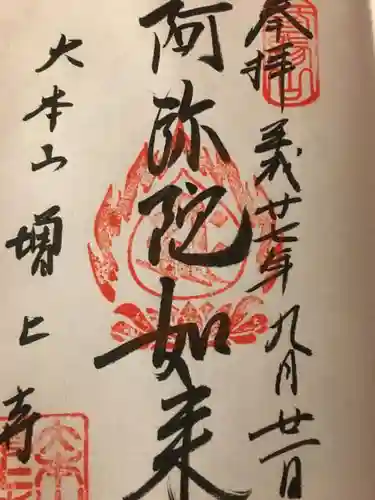 奉拝
義廿七年九月廿一日
阿弥陀如来
大本山
増上寺